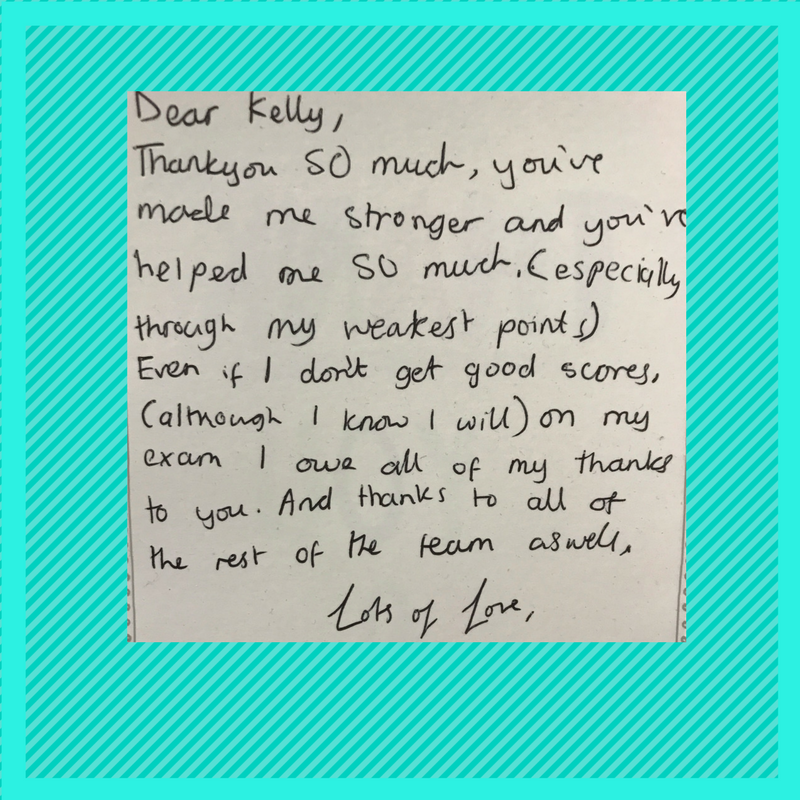 Dear Kelly,
Thankyou SO much, you've
made me stronger and you've
helped me SO much. (especially
through my weakest points)
Even if I don't get good scores,
(although I know I will) on my
exam I owe all of my thanks
to you. And thanks to all of
the rest of the team aswell.
Lots of Love,